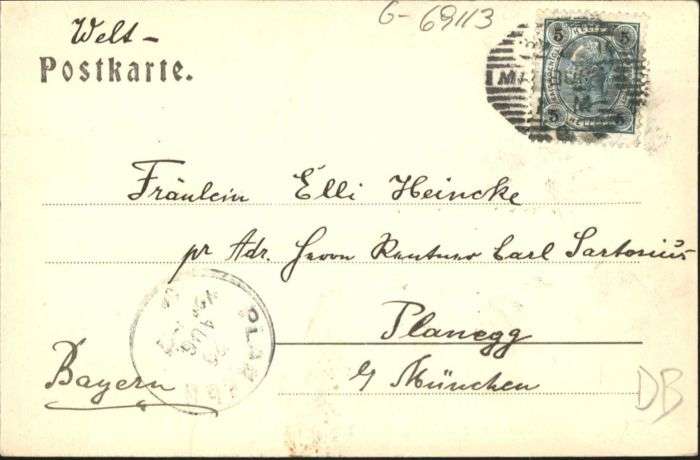 G-69113
Welt-
Postkarte.
5 5
5 5
Fräulein Elli Heincke
pr Adr. Herrn Rentner Carl Sartorius
Planegg
b/ München
Bayern
PLANEGG
AUG
DB